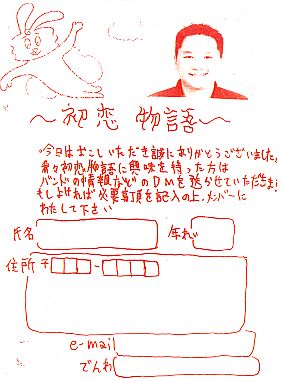 ～初恋物語～
今日はおこしいただき誠にありがとうございました。
我々初恋物語に興味を持った方は
バンドの情報などのDMを送らせていただきます
もしよければ必要事項を記入の上、メンバーに
わたして下さい
氏名 年れい
住所 〒 -
e-mail
でんわ